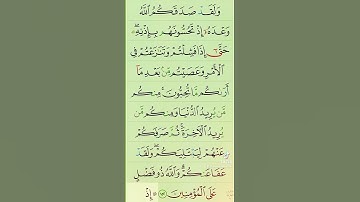 وَلَقَدْ صَدَقَكُمُ اللَّهُ
وَعْدَهُ إِذْ تَحُسُّونَهُم بِإِذْنِهِ
حَتَّىٰ إِذَا فَشِلْتُمْ وَتَنَازَعْتُمْ فِي
الْأَمْرِ وَعَصَيْتُم مِّن بَعْدِ مَا
أَرَاكُم مَّا تُحِبُّونَ مِنكُم
مَّن يُرِيدُ الدُّنْيَا وَمِنكُم
مَّن يُرِيدُ الْآخِرَةَ ثُمَّ صَرَفَكُمْ
عَنْهُمْ لِيَبْتَلِيَكُمْ وَلَقَدْ
عَفَا عَنكُمْ وَاللَّهُ ذُو فَضْلٍ
عَلَى الْمُؤْمِنِينَ ١٥٢ إِذْ